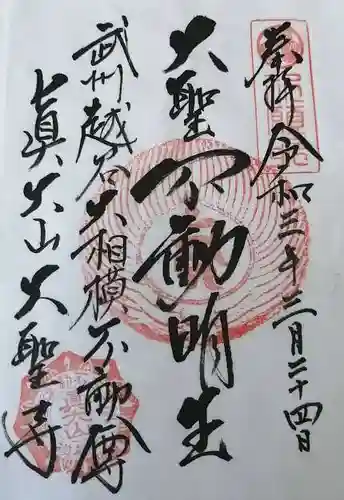 奉拝 令和三年三月二十四日
大聖不動明王
武州越谷大相模不動尊
真大山大聖寺